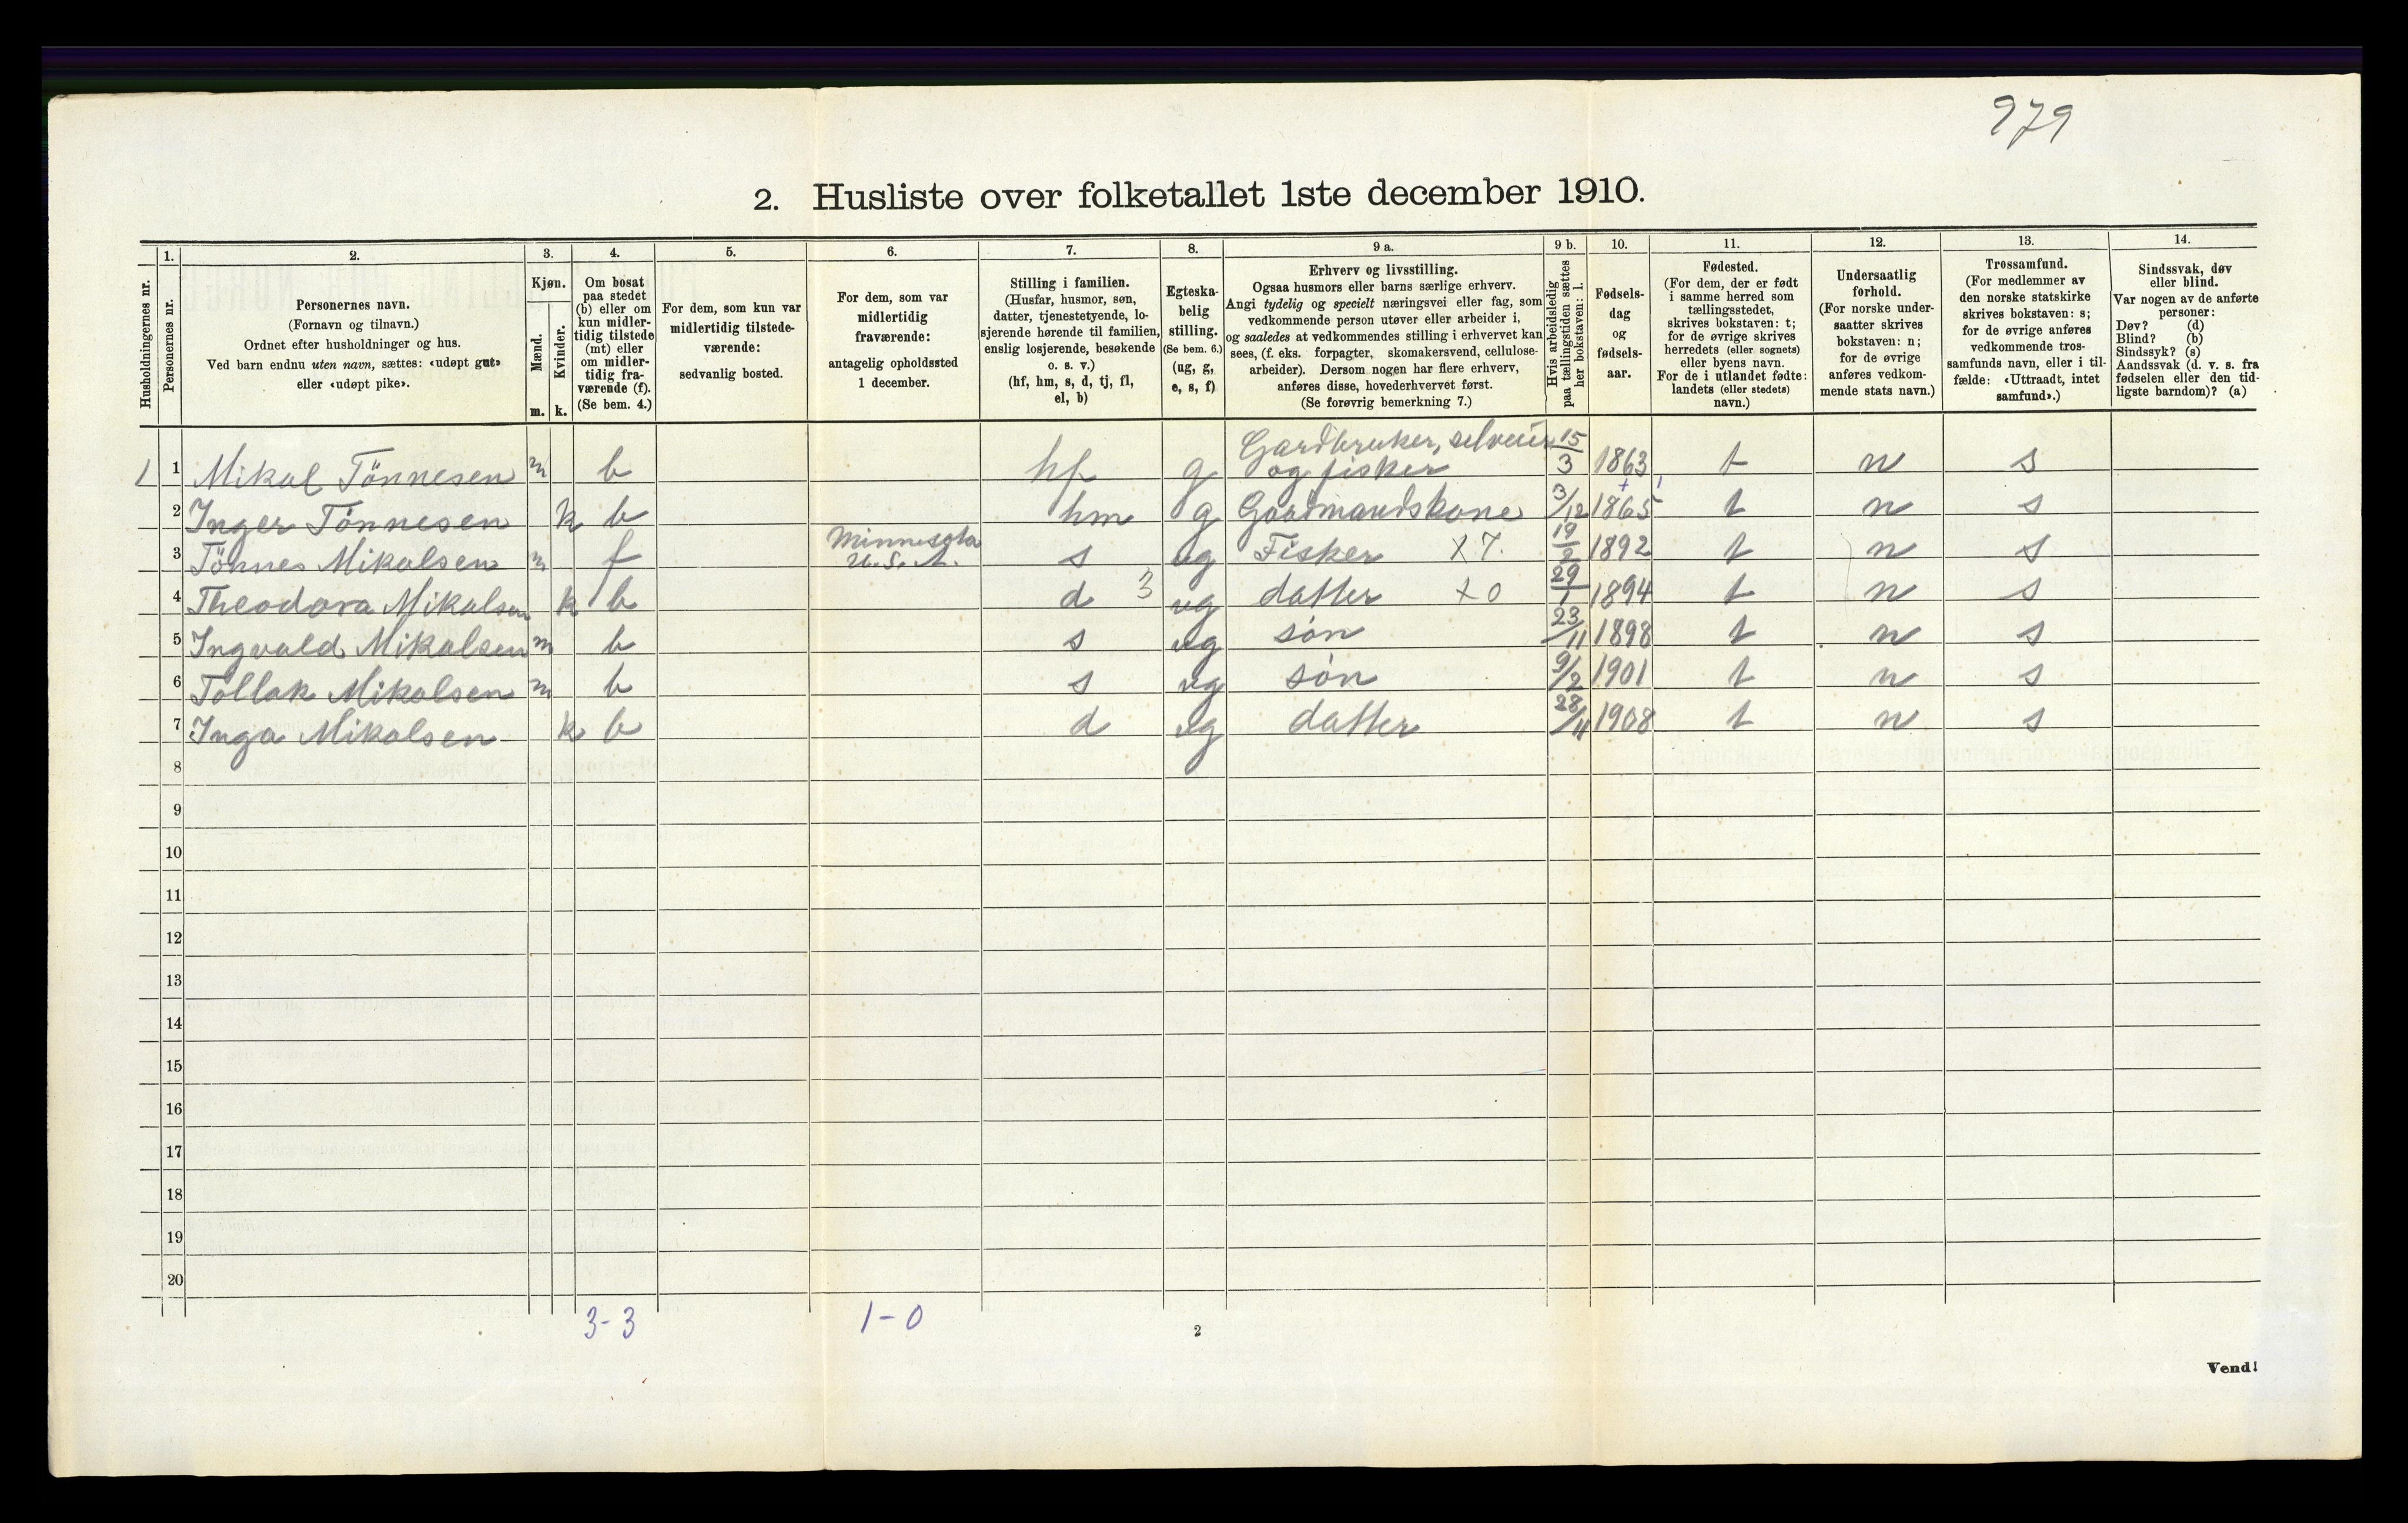 979
2. Husliste over folketallet 1ste december 1910.
1. 2. 3. 4. 5. 6. 7. 8. 9 a. 9 b. 10. 11. 12. 13. 14.
Husholdningernes nr.
Personernes nr.
Personernes navn.
(Fornavn og tilnavn.)
Ordnet efter husholdninger og hus.
Ved barn endnu uten navn, sættes: «udøpt gut»
eller «udøpt pike».
Kjøn.
Mænd.
Kvinder.
m. k.
Om bosat
paa stedet
(b) eller om
kun midler-
tidig tilstede
(mt) eller
om midler-
tidig fra-
værende (f).
(Se bem. 4.)
For dem, som kun var
midlertidig tilstede-
værende:
sedvanlig bosted.
For dem, som var
midlertidig
fraværende:
antagelig opholdssted
1 december.
Stilling i familien.
(Husfar, husmor, søn,
datter, tjenestetyende, lo-
sjerende hørende til familien,
enslig losjerende, besøkende
o. s. v.)
(hf, hm, s, d, tj, fl,
el, b)
Egteska-
belig
stilling.
(Se bem. 6.)
(ug, g,
e, s, f)
Erhverv og livsstilling.
Ogsaa husmors eller barns særlige erhverv.
Angi tydelig og specielt næringsvei eller fag, som
vedkommende person utøver eller arbeider i,
og saaledes at vedkommendes stilling i erhvervet kan
sees, (f. eks. forpagter, skomakersvend, cellulose-
arbeider). Dersom nogen har flere erhverv,
anføres disse, hovederhvervet først.
(Se forøvrig bemerkning 7.)
Hvis arbeidsledig
paa tællingstiden sættes
her bokstaven: l.
Fødsels-
dag
og
fødsels-
aar.
Fødested.
(For dem, der er født
i samme herred som
tællingsstedet,
skrives bokstaven: t;
for de øvrige skrives
herredets (eller sognets)
eller byens navn.
For de i utlandet fødte:
landets (eller stedets)
navn.)
Undersaatlig
forhold.
(For norske under-
saatter skrives
bokstaven: n;
for de øvrige
anføres vedkom-
mende stats navn.)
Trossamfund.
(For medlemmer av
den norske statskirke
skrives bokstaven: s;
for de øvrige anføres
vedkommende tros-
samfunds navn, eller i til-
fælde: «Uttraadt, intet
samfund».)
Sindssvak, døv
eller blind.
Var nogen av de anførte
personer:
Døv? (d)
Blind? (b)
Sindssyk? (s)
Aandssvak (d. v. s. fra
fødselen eller den tid-
ligste barndom)? (a)
1 1 Mikal Tönnesen m b hf g Gardbruker, selveier og fisker 15/3 1863 t n s
2 Inger Tönnesen k b hm g Gardmandskone 3/12 1865 t n s
3 Tönnes Mikalsen m f Minnesota U. S. A. s ug Fisker X 7. 19/2 1892 t n s
4 Theodora Mikalsen k b d 3 ug datter X 0 29/1 1894 t n s
5 Ingvald Mikalsen m b s ug søn 23/11 1898 t n s
6 Tollak Mikalsen m b s ug søn 9/2 1901 t n s
7 Inga Mikalsen k b d ug datter 28/11 1908 t n s
8
9
10
11
12
13
14
15
16
17
18
19
20
3-3 1-0
2
Vend!